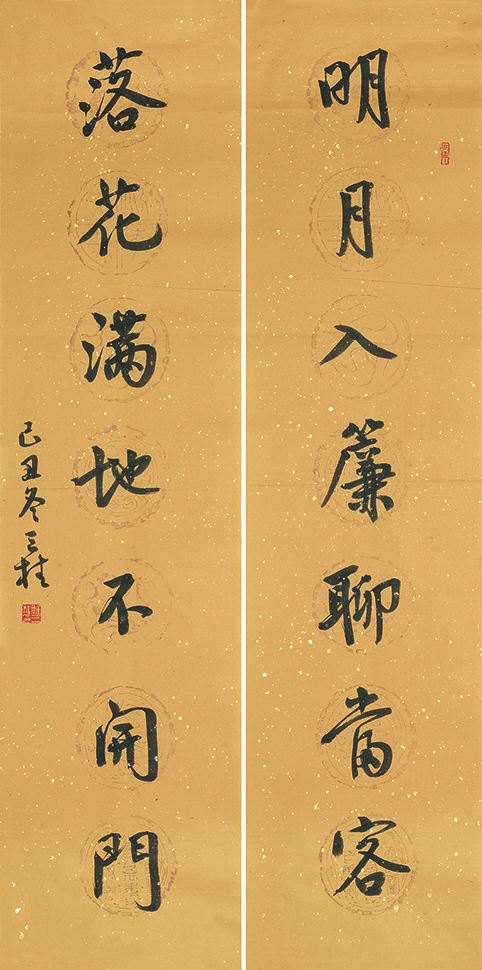 明月入簾聊當客
落花满地不開門
己丑冬三桂